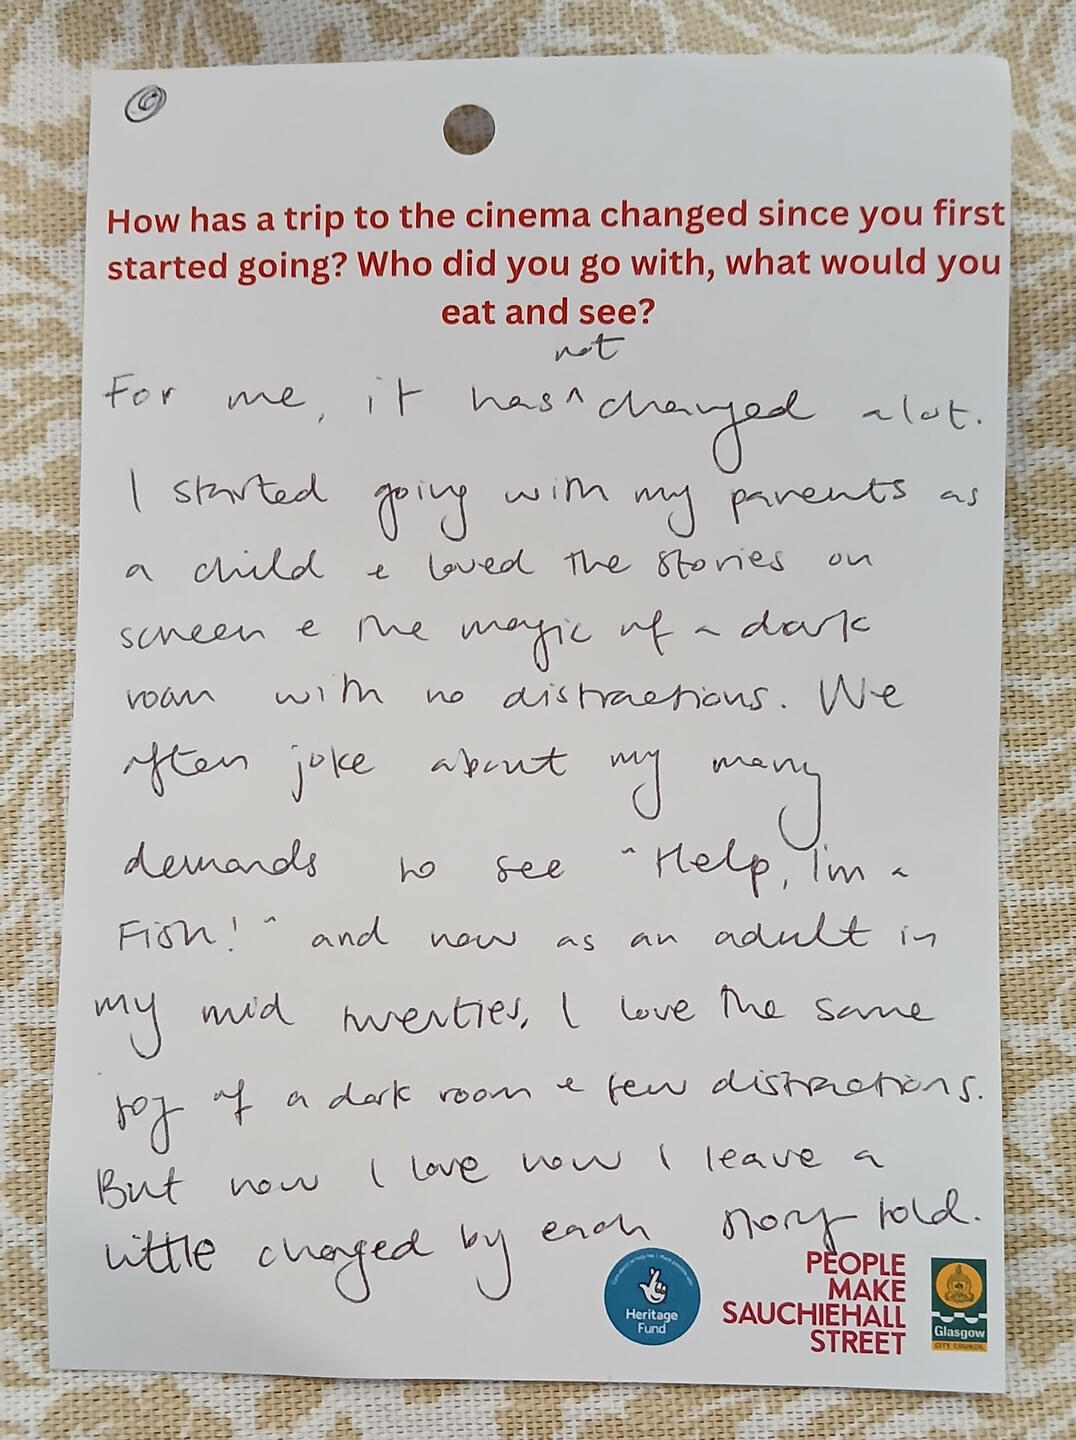 How has a trip to the cinema changed since you first
started going? Who did you go with, what would you
eat and see?
not
For me, it has ^ changed alot.
I started going with my parents as
a child & loved the stories on
screen & the magic of a dark
room with no distractions. We
often joke about my many
demands to see "Help, I'm a
Fish!" and now as an adult in
my mid twenties, I love the same
joy of a dark room & few distractions.
But now I love how I leave a
little changed by each story told.
Heritage
Fund
PEOPLE
MAKE
SAUCHIEHALL
STREET
Glasgow
CITY COUNCIL